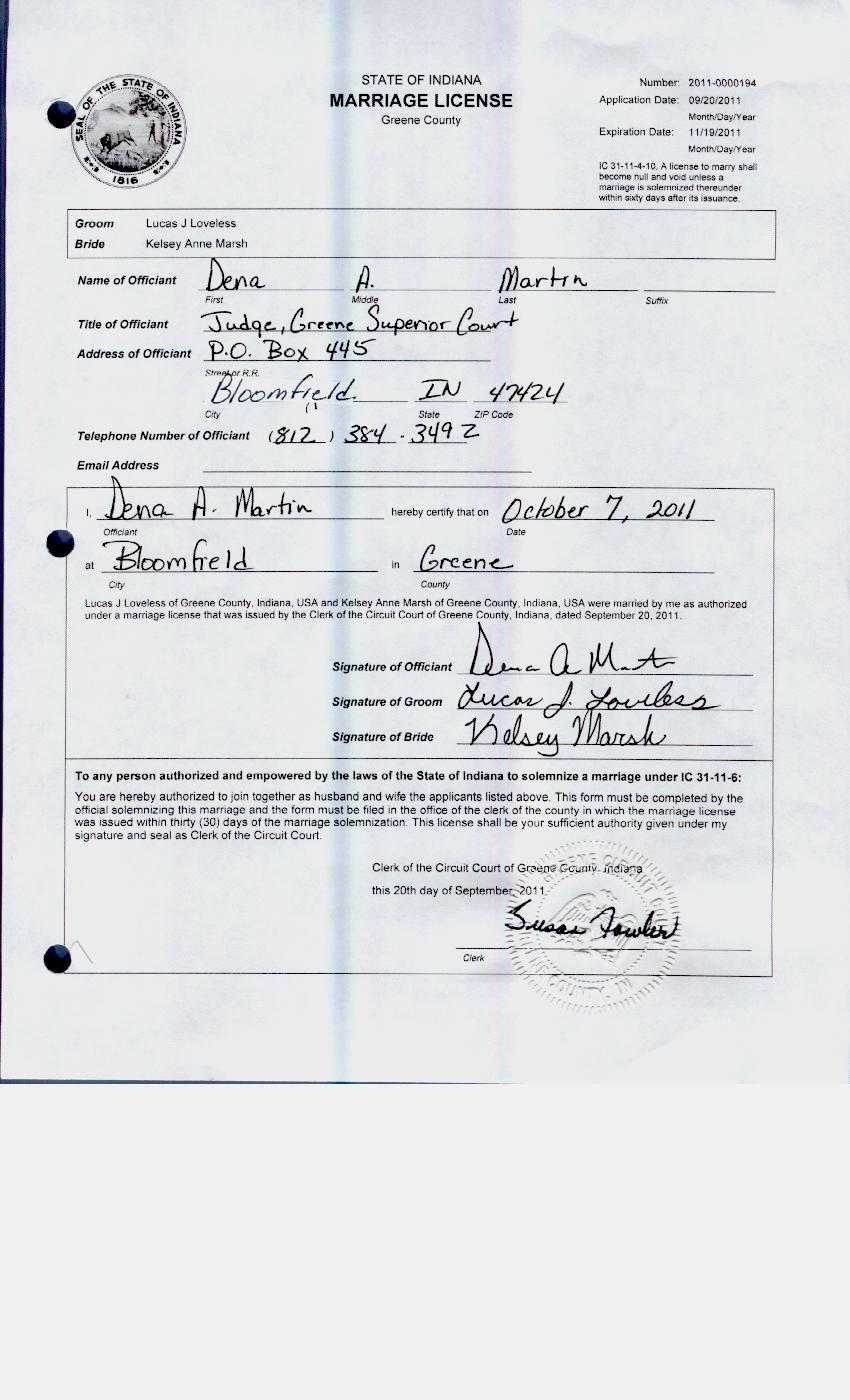 SEAL OF THE STATE OF INDIANA
1816
STATE OF INDIANA
MARRIAGE LICENSE
Greene County
Number: 2011-0000194
Application Date: 09/20/2011
Month/Day/Year
Expiration Date: 11/19/2011
Month/Day/Year
IC 31-11-4-10, A license to marry shall
become null and void unless a
marriage is solemnized thereunder
within sixty days after its issuance.
Groom Lucas J Loveless
Bride Kelsey Anne Marsh
Name of Officiant Dena A. Martin
First Middle Last Suffix
Title of Officiant Judge, Greene Superior Court
Address of Officiant P.O. Box 445
Street or R.R.
Bloomfield IN 47424
City State ZIP Code
Telephone Number of Officiant (812) 384-3492
Email Address
I, Dena A. Martin hereby certify that on October 7, 2011
Officiant Date
at Bloomfield in Greene
City County
Lucas J Loveless of Greene County, Indiana, USA and Kelsey Anne Marsh of Greene County, Indiana, USA were married by me as authorized
under a marriage license that was issued by the Clerk of the Circuit Court of Greene County, Indiana, dated September 20, 2011.
Signature of Officiant Dena A Mart
Signature of Groom Lucas J. Loveless
Signature of Bride Kelsey Marsh
To any person authorized and empowered by the laws of the State of Indiana to solemnize a marriage under IC 31-11-6:
You are hereby authorized to join together as husband and wife the applicants listed above. This form must be completed by the
official solemnizing this marriage and the form must be filed in the office of the clerk of the county in which the marriage license
was issued within thirty (30) days of the marriage solemnization. This license shall be your sufficient authority given under my
signature and seal as Clerk of the Circuit Court.
Clerk of the Circuit Court of Greene County, Indiana
this 20th day of September, 2011.
Susan Fowler
Clerk